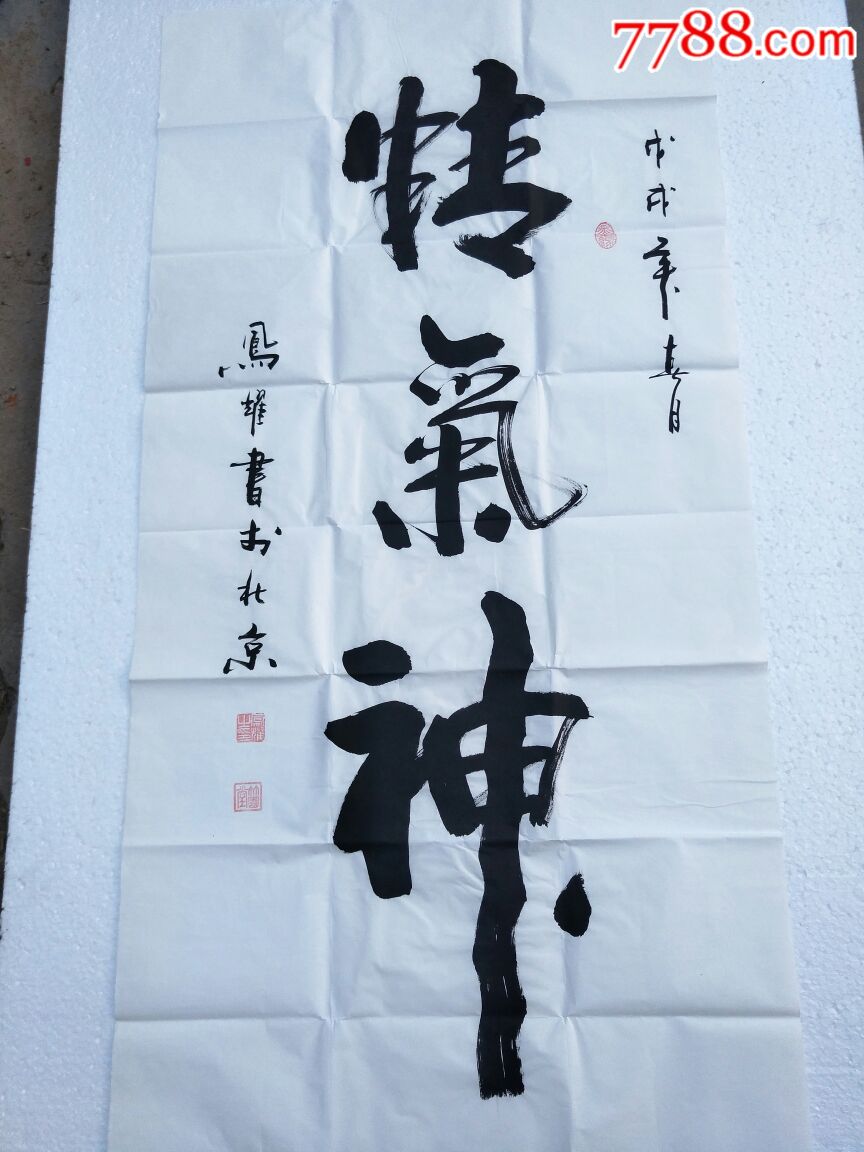 7788.com
戊戌年春月
精氣神
鳳耀書於北京